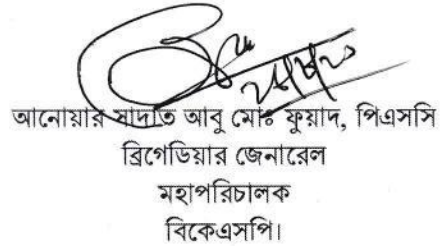 আনোয়ার সাদাত আবু মোঃ ফুয়াদ, পিএসসি
ব্রিগেডিয়ার জেনারেল
মহাপরিচালক
বিকেএসপি।